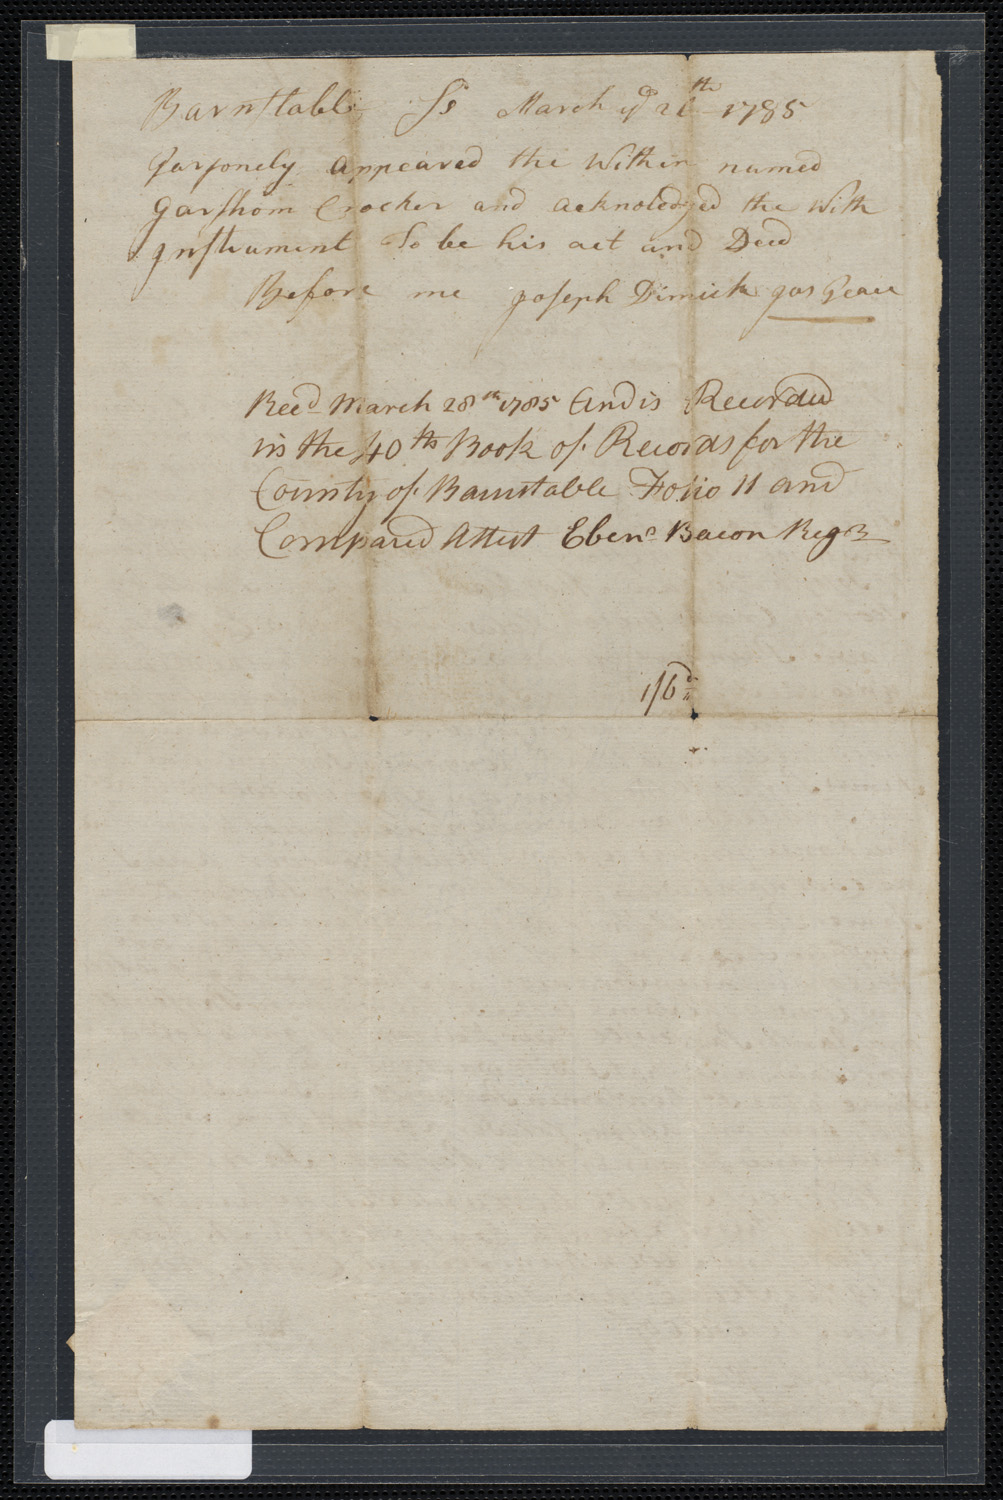 Barnstable Ss March ye 26th 1785
Parsonely appeared the Within named
Garshom Crocker and acknoledged the With
Instrument To be his act and Deed
Before me Joseph Dimick Jus Peace
Recd March 28th 1785 And is Recorded
in the 40th Book of Records for the
County of Barnstable Folio 11 and
Compared Attest Ebenr Bacon Regr
1/6d